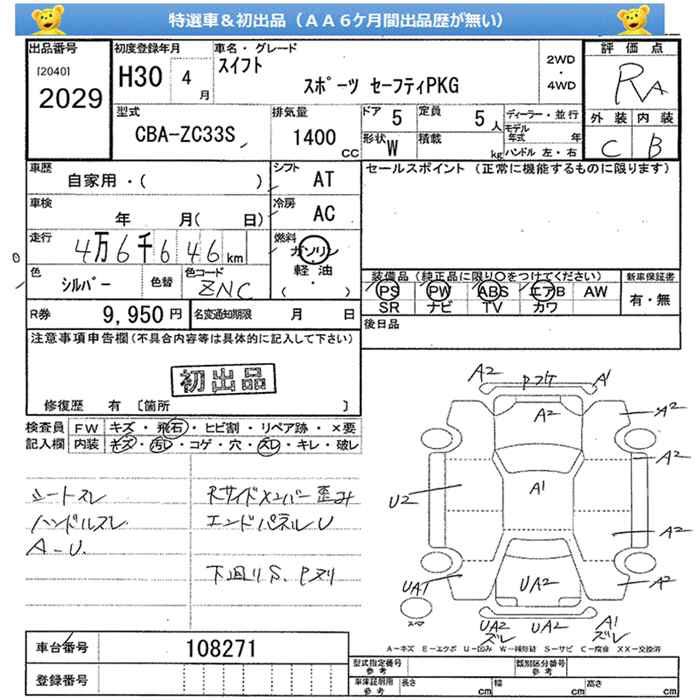 特選車＆初出品（ＡＡ６ケ月間出品歴が無い）
出品番号 初度登録年月 車名・グレード 評価点
[2040] 2029 H30 4月 スイフト スポーツ セーフティPKG 2WD・4WD RA
型式 排気量 ドア 定員 ディーラー・並行 外装 内装
CBA-ZC33S 1400cc 5 5人 モデル年式 年 C B
形状 W 積載 kg ハンドル 左・右
車歴 シフト セールスポイント（正常に機能するものに限ります）
自家用・( ) AT
車検 冷房
年 月( 日) AC
走行 燃料
4万6千646km ガソリン
軽油
( ・ )
色 色替 色コード 装備品（純正品に限り○をつけてください） 新車保証書
シルバー ZNC PS PW ABS エアB AW 有・無
SR ナビ TV カワ
R券 9,950円 名変通知期限 月 日 後日品
注意事項申告欄（不具合内容等は具体的に記入して下さい）
初出品
修復歴 有 [箇所 ]
検査員 FW キズ・飛石・ヒビ割・リペア跡・×要
記入欄 内装 キズ・汚レ・コゲ・穴・スレ・キレ・破レ
シートスレ Rサイドメンバー歪み
ハンドルスレ エンドパネルU
A-U.
下廻りS、Pヌリ
A2 Pフケ A1
A2 A2
A2
U2 A1 A2
UA1 UA2 A2
スペア
UA2 UA2 A1
ズレ ズレ
A-キズ E-エクボ U-凹み W-補修跡 S-サビ C-腐食 XX-交換済
車台番号 108271
登録番号
型式指定番号 参考 類別区分番号 参考
車庫証明用 参考 長さ cm 幅 cm 高さ cm